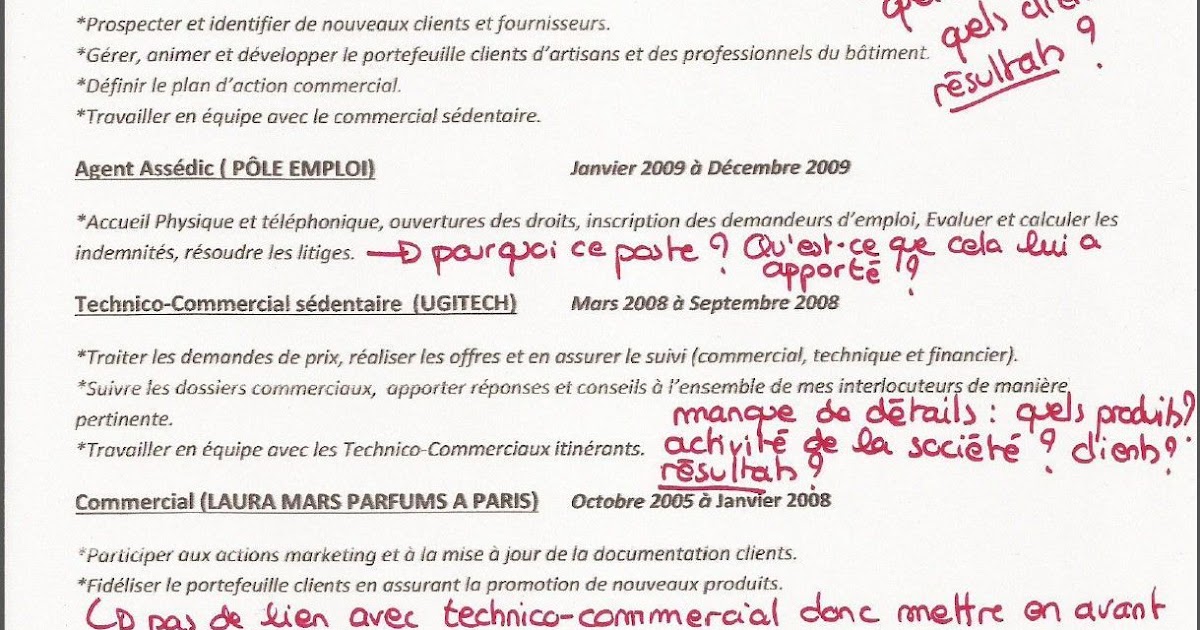 *Prospecter et identifier de nouveaux clients et fournisseurs.
quels clients
*Gérer, animer et développer le portefeuille clients d'artisans et des professionnels du bâtiment.
résultats ?
*Définir le plan d'action commercial.
*Travailler en équipe avec le commercial sédentaire.
Agent Assédic ( PÔLE EMPLOI) Janvier 2009 à Décembre 2009
*Accueil Physique et téléphonique, ouvertures des droits, inscription des demandeurs d'emploi, Evaluer et calculer les
indemnités, résoudre les litiges. → pourquoi ce poste ? Qu'est-ce que cela lui a
apporté ?
Technico-Commercial sédentaire (UGITECH) Mars 2008 à Septembre 2008
*Traiter les demandes de prix, réaliser les offres et en assurer le suivi (commercial, technique et financier).
*Suivre les dossiers commerciaux, apporter réponses et conseils à l'ensemble de mes interlocuteurs de manière
pertinente.
manque de détails : quels produits?
*Travailler en équipe avec les Technico-Commerciaux itinérants.
activité de la société ? clients ?
résultats ?
Commercial (LAURA MARS PARFUMS A PARIS) Octobre 2005 à Janvier 2008
*Participer aux actions marketing et à la mise à jour de la documentation clients.
*Fidéliser le portefeuille clients en assurant la promotion de nouveaux produits.
↳ pas de lien avec technico-commercial donc mettre en avant